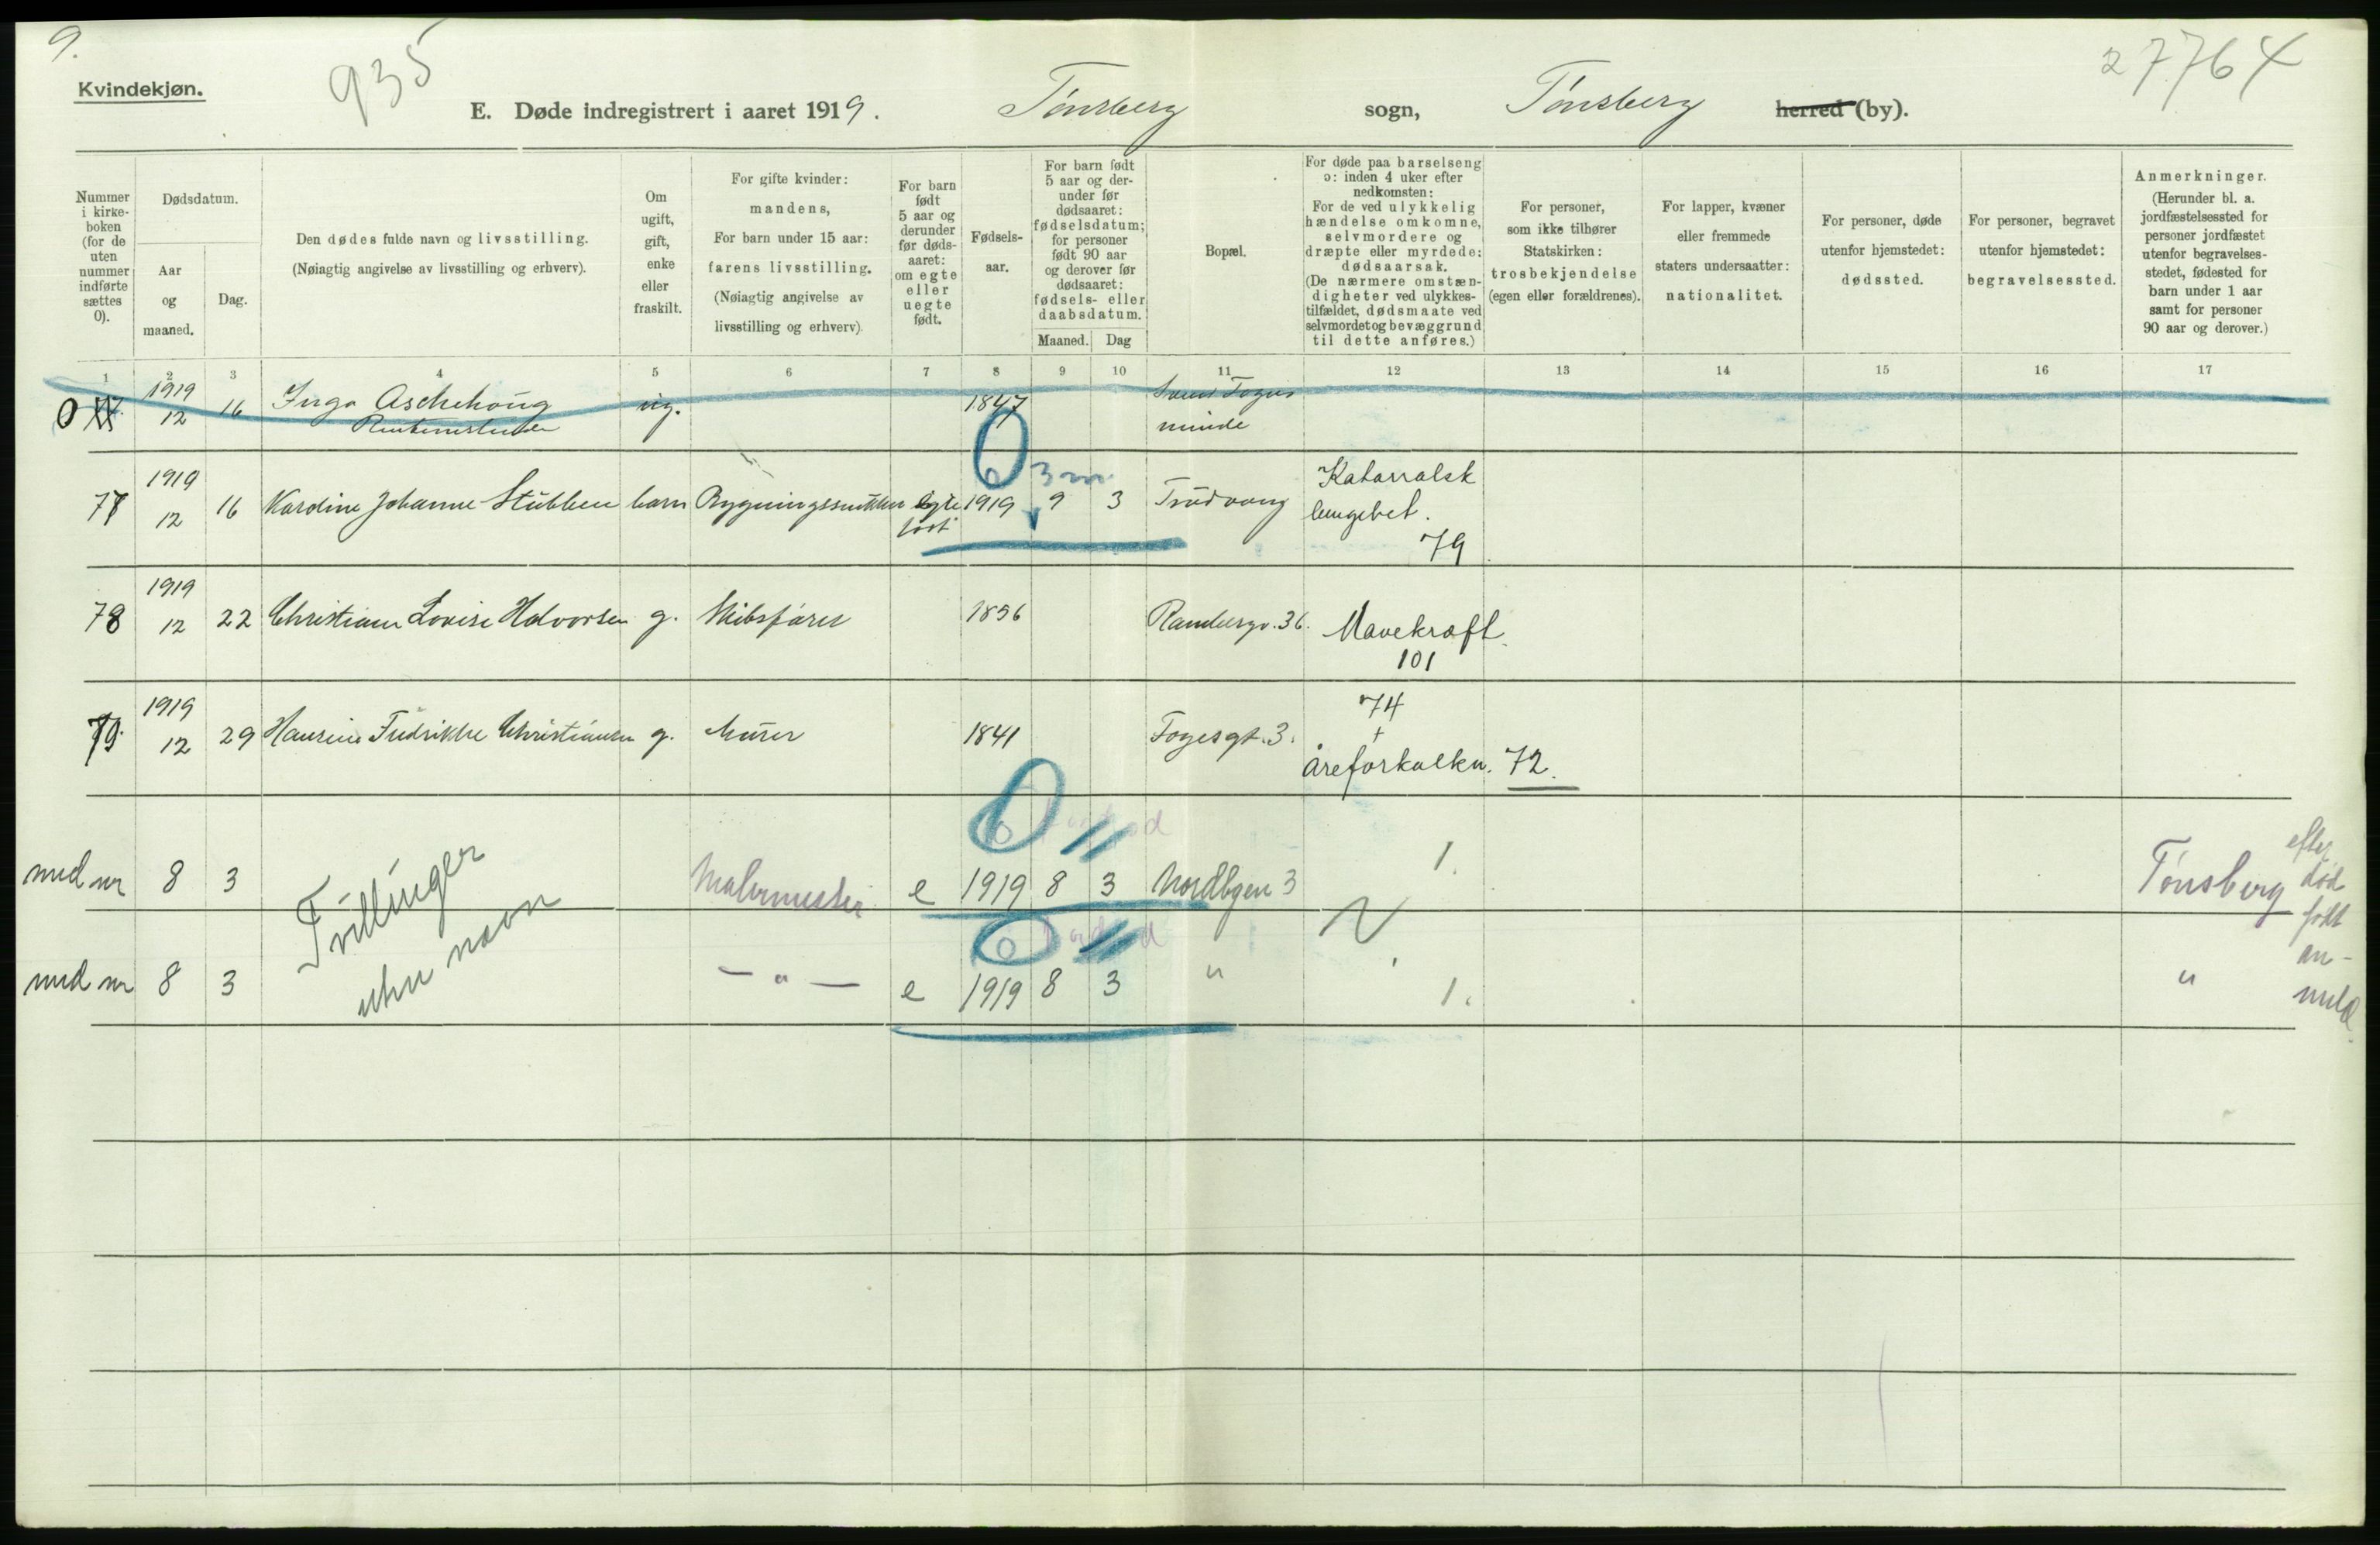 9.
Kvindekjøn.
935
27764
E. Døde indregistrert i aaret 1919. Tønsberg sogn, Tønsberg herred (by).
Nummer i kirkeboken (for de uten nummer indførte sættes 0).
Dødsdatum.
Aar og maaned.
Dag.
Den dødes fulde navn og livsstilling.
(Nøiagtig angivelse av livsstilling og erhverv).
Om ugift, gift, enke eller fraskilt.
For gifte kvinder: mandens,
For barn under 15 aar: farens livsstilling.
(Nøiagtig angivelse av livsstilling og erhverv).
For barn født 5 aar og derunder før dødsaaret: om egte eller uegte født.
Fødselsaar.
For barn født 5 aar og derunder før dødsaaret: fødselsdatum; for personer født 90 aar og derover før dødsaaret: fødsels- eller daabsdatum.
Maaned. Dag
Bopæl.
For døde paa barselseng ɔ: inden 4 uker efter nedkomsten:
For de ved ulykkelig hændelse omkomne, selvmordere og dræpte eller myrdede: dødsaarsak.
(De nærmere omstændigheter ved ulykkestilfældet, dødsmaate ved selvmordet og bevæggrund til dette anføres.)
For personer, som ikke tilhører Statskirken: trosbekjendelse (egen eller forældrenes).
For lapper, kvæner eller fremmede staters undersaatter: nationalitet.
For personer, døde utenfor hjemstedet: dødssted.
For personer, begravet utenfor hjemstedet: begravelsessted.
Anmerkninger.
(Herunder bl. a. jordfæstelsessted for personer jordfæstet utenfor begravelsesstedet, fødested for barn under 1 aar samt for personer 90 aar og derover.)
1 2 3 4 5 6 7 8 9 10 11 12 13 14 15 16 17
0 1919 12 16 Inga Aschehoug ug. 1847
minde
77 1919 12 16 Kardine Johanne Stubben barn Bygningssnekker egte født 1919 9 3 Trudvang Katarralsk lungebet. 79
3 m.
78 1919 12 22 Christiane Lovise Halvorsen g. Skibsfører 1856 Rambergv. 36. Mavekræft. 101
79 1919 12 29 Hansine Fredrikke Christiansen g. Murer 1841 Fogesgt. 3. 74 + åreforkalkn. 72.
med nr 8 3 Tvillinger uten navn Malermester e 1919 8 3 Nordbyen 3 1. Tønsberg
efter død født anmeld.
med nr 8 3 — " — e 1919 8 3 " 1. "